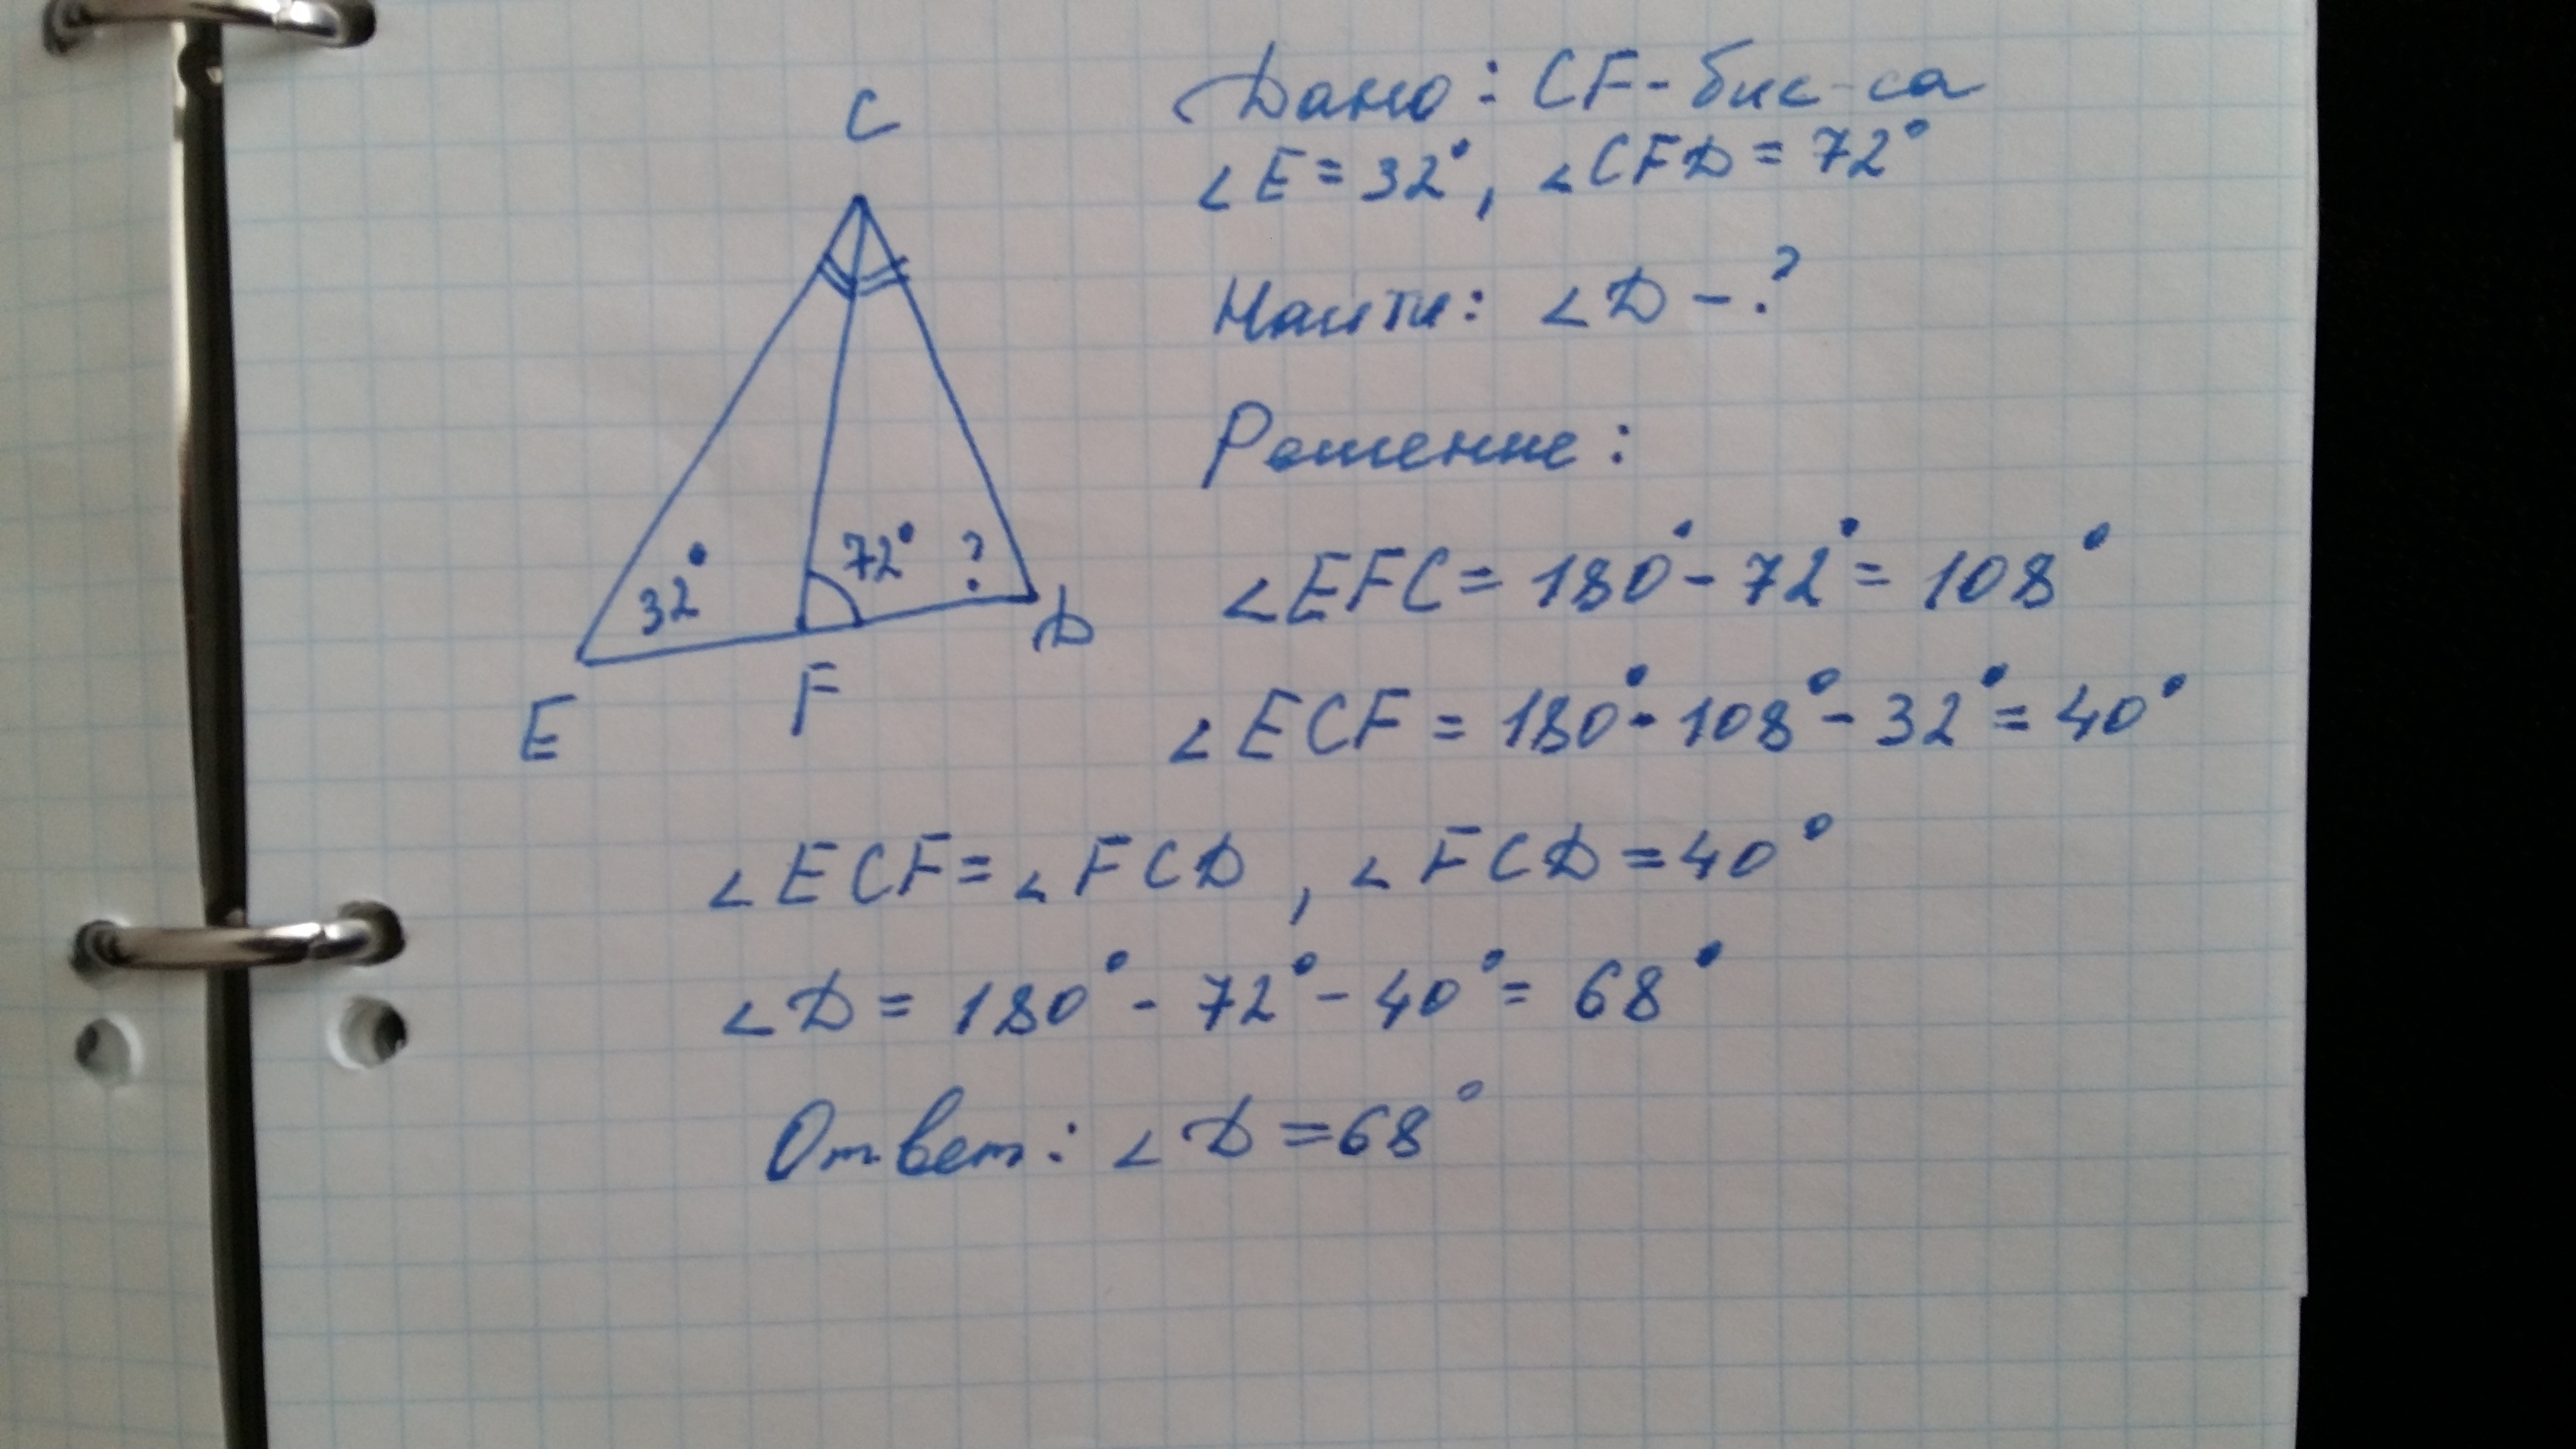 C
32°
72°
?
E
F
D
Дано: CF-бис-са
∠E = 32°, ∠CFD = 72°
Найти: ∠D - ?
Решение:
∠EFC = 180° - 72° = 108°
∠ECF = 180° - 108° - 32° = 40°
∠ECF = ∠FCD, ∠FCD = 40°
∠D = 180° - 72° - 40° = 68°
Ответ: ∠D = 68°